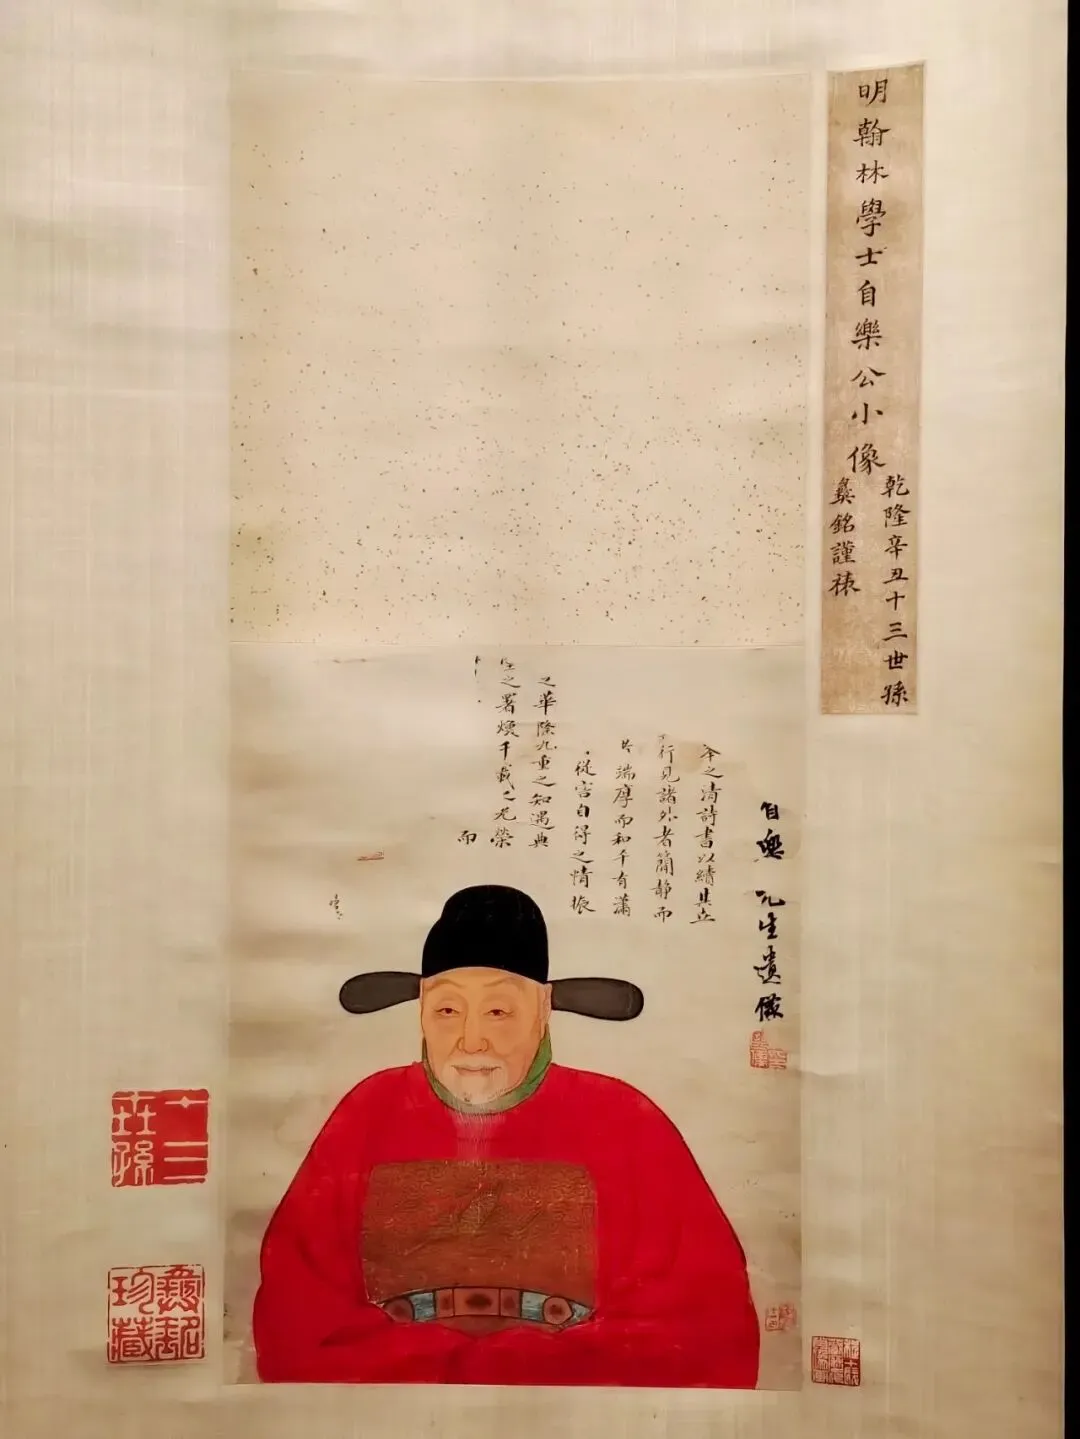 明翰林學士自樂公小像
乾隆辛丑十三世孫
彝銘謹裱
自樂先生遺像
之清詩書以績其立
行見諸外者簡静而
端厚而和平有瀟
從容自得之情振
之華隆九重之知遇典
之署煥千載之光榮
而
十三世孫
彝銘珍藏